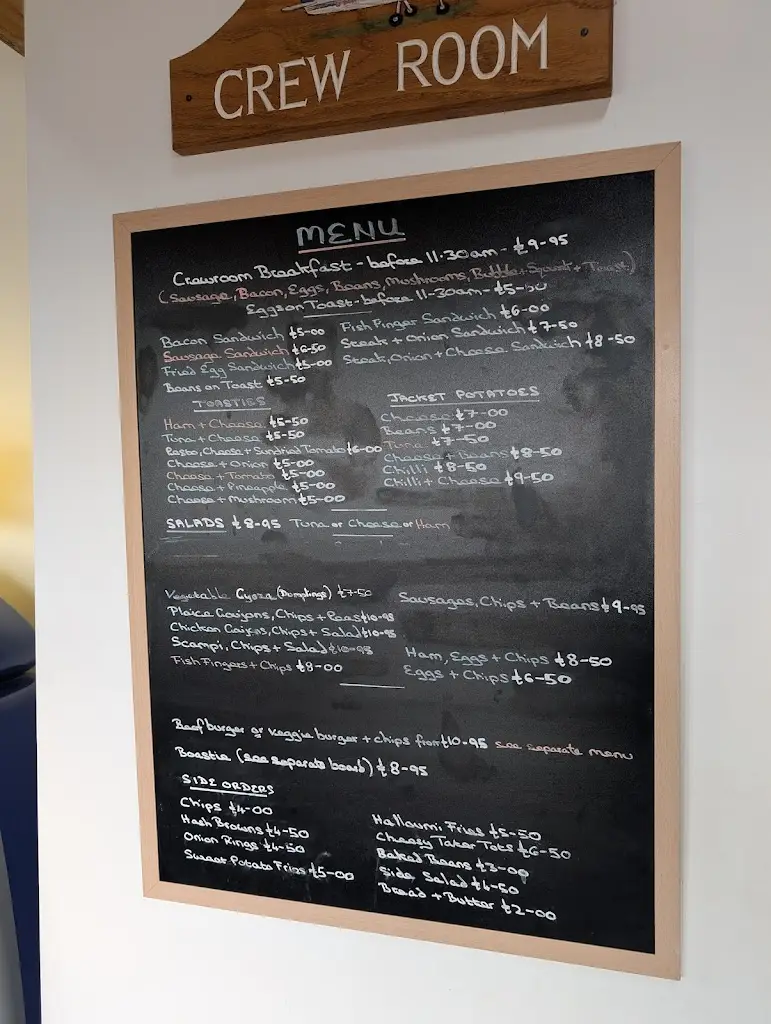 CREW ROOM
MENU
Crewroom Breakfast - before 11.30am - £9-95
(Sausage, Bacon, Eggs, Beans, Mushrooms, Bubble + Squeak + Toast)
Eggs on Toast - before 11-30am - £5-50
Bacon Sandwich £5-00
Sausage Sandwich £6-50
Fried Egg Sandwich £5-00
Beans on Toast £5-50
Fish Finger Sandwich £6-00
Steak + Onion Sandwich £7-50
Steak, Onion + Cheese Sandwich £8-50
TOASTIES
Ham + Cheese £5-50
Tuna + Cheese £5-50
Pesto, Cheese + Sundried Tomato £6-00
Cheese + Onion £5-00
Cheese + Tomato £5-00
Cheese + Pineapple £5-00
Cheese + Mushroom £5-00
JACKET POTATOES
Cheese £7-00
Beans £7-00
Tuna £7-50
Cheese + Beans £8-50
Chilli £8-50
Chilli + Cheese £9-50
SALADS £8-95 Tuna or Cheese or Ham
Vegetable Gyoza (Dumplings) £7-50
Plaice Goujons, Chips + Peas £10-95
Chicken Goujons, Chips + Salad £10-95
Scampi, Chips + Salad £10-95
Fish Fingers + Chips £9-00
Sausages, Chips + Beans £9-95
Ham, Eggs + Chips £8-50
Eggs + Chips £6-50
Beef burger or veggie burger + chips from £10-95 see separate menu
Boastie (see separate board) £8-95
SIDE ORDERS
Chips £4-00
Hash Browns £4-50
Onion Rings £4-50
Sweet Potato Fries £5-00
Halloumi Fries £5-50
Cheesy Tater Tots £6-50
Baked Beans £3-00
Side Salad £4-50
Bread + Butter £2-00